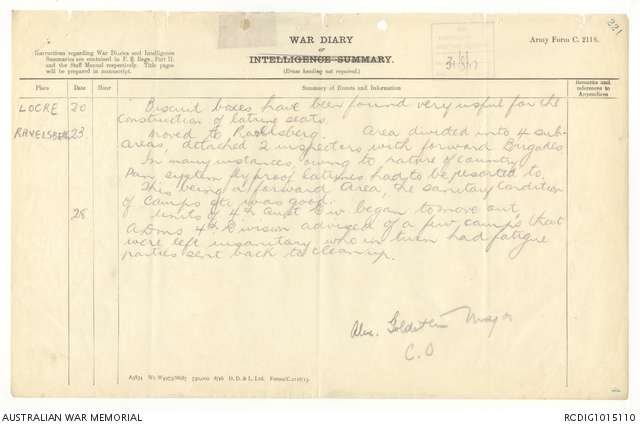 221
WAR DIARY
or
INTELLIGENCE SUMMARY.
(Erase heading not required.)
Army Form C. 2118.
Instructions regarding War Diaries and Intelligence
Summaries are contained in F. S. Regs., Part II.
and the Staff Manual respectively. Title pages
will be prepared in manuscript.
Place Date Hour Summary of Events and Information Remarks and references to Appendices
LOCRE 20 Biscuit boxes have been found very useful for the
construction of latrine seats.
RAVELSBERG 23 Moved to Area divided into 4 sub-
areas, detached 2 inspectors with forward Brigades
In many instances, owing to nature of country
Pan system fly proof latrines had to be resorted to.
This being a forward Area, the sanitary condition
of camps etc was good.
28 Units of 4th Aust Div. began to move out,
ADMS 4th Division advised of a few camps that
were left insanitary who in turn had fatigue
parties sent back to clean up.
Alex. Goldstein Major
C.O
A5834 Wt. W4973/M687 750,000 8/16 D. D. & L. Ltd. Forms/C.2118/13.
AUSTRALIAN WAR MEMORIAL
RCDIG1015110